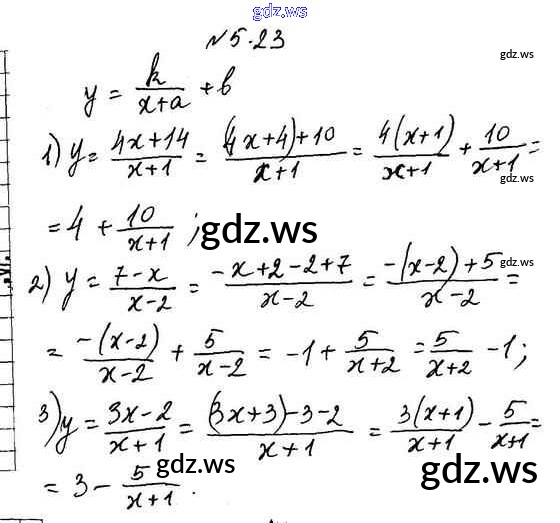 gdz.ws
№5.23
gdz.ws
y = k/(x+a) + b
1) y = (4x+14)/(x+1) = ((4x+4)+10)/(x+1) = 4(x+1)/(x+1) + 10/(x+1) =
gdz.ws
= 4 + 10/(x+1) ;
gdz.ws
gdz.ws
2) y = (7-x)/(x-2) = (-x+2-2+7)/(x-2) = (-(x-2)+5)/(x-2) =
= -(x-2)/(x-2) + 5/(x-2) = -1 + 5/(x+2) = 5/(x+2) - 1;
3) y = (3x-2)/(x+1) = ((3x+3)-3-2)/(x+1) = 3(x+1)/(x+1) - 5/(x+1) =
gdz.ws
gdz.ws
= 3 - 5/(x+1) .